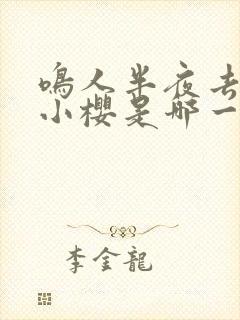 鳴人半夜去
小櫻是哪一
李金龍